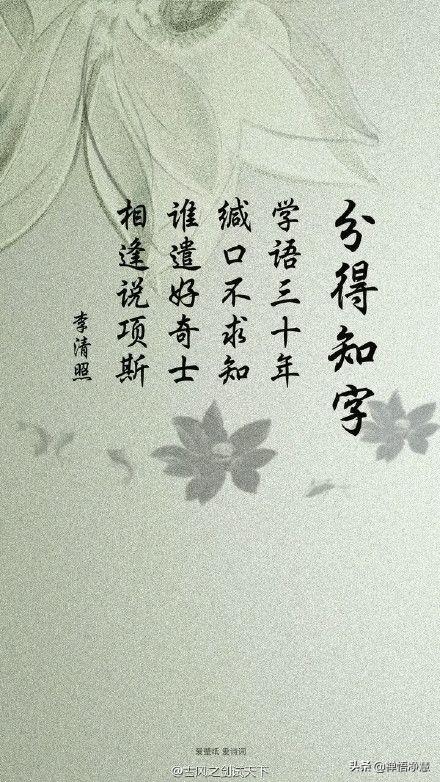 分得知字
学语三十年
缄口不求知
谁遣好奇士
相逢说项斯
李清照
爱壁纸 爱诗词
@古风之创试天下
头条 @禅悟净慧